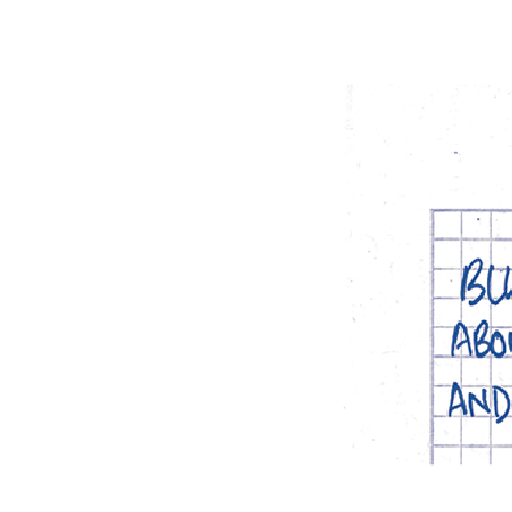 BU
ABO
AND